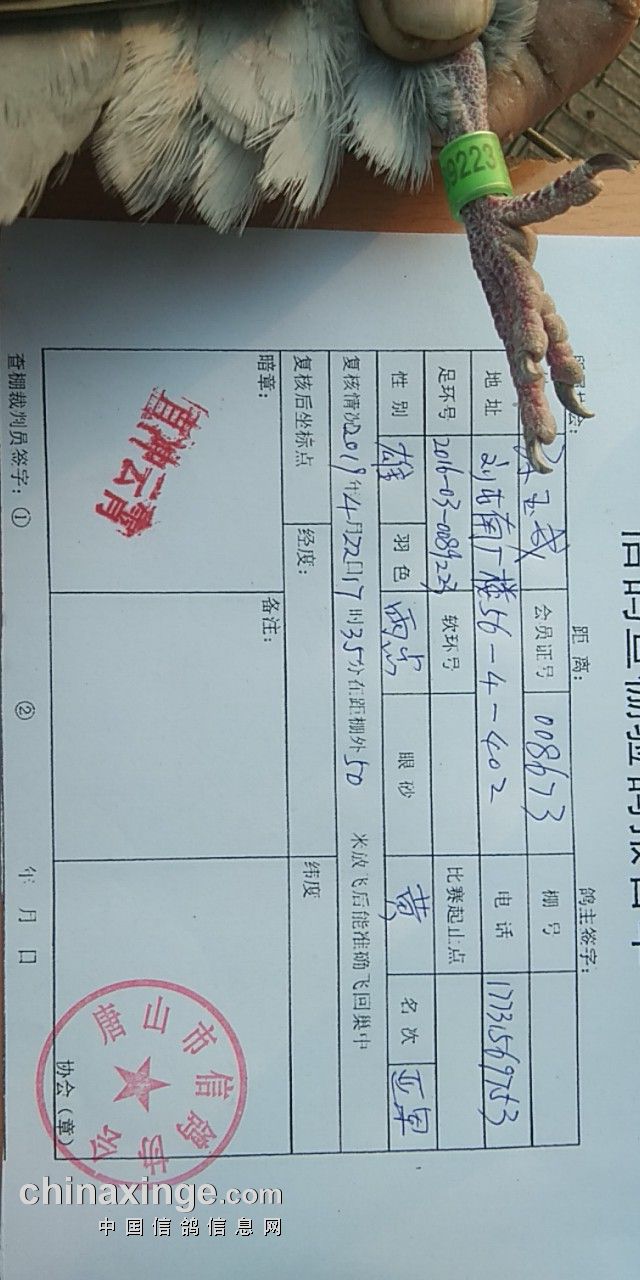 9223
鸽主签字:
距离:
会员证号 008673 棚号
地址 楼56-4-402 电话 17731569753
足环号 2016-03-0089223 软环号 比赛起止点
性别 雄 羽色 雨点 眼砂 黄 名次 亚军
复核情况2019年4月22日17时35分在距棚外50米放飞后能准确飞回巢中
复核后坐标点 经度: 纬度
暗章: 备注:
唐山市信鸽协会
协会(章)
查棚裁判员签字: ① ② 年 月 日
chinaxinge.com
中国信鸽信息网